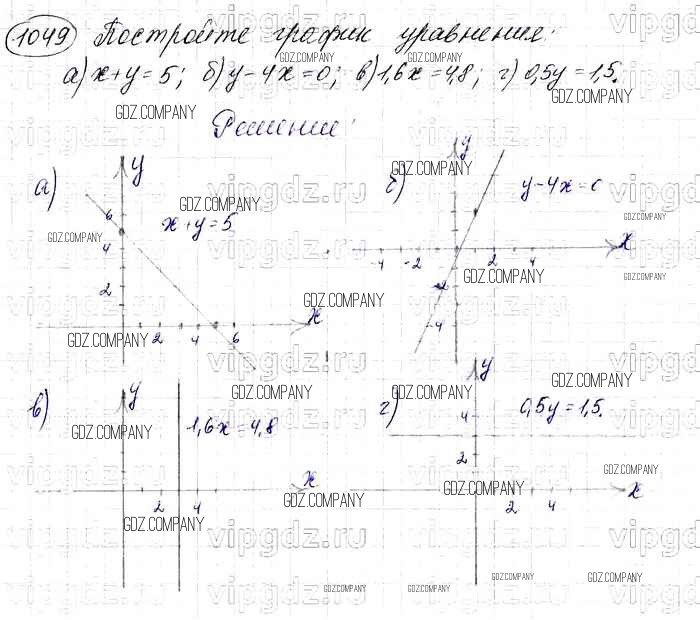 1049 Постройте график уравнения:
а) x+y=5; б) y-4x=0; в) 1,6x=4,8; г) 0,5y=1,5.
Решение:
а) y
6
4
2
x+y=5
2 4 6 x
б) y
y-4x=0
-4 -2 2 4 x
-2
-4
в) y
1,6x=4,8
2 4 x
г) y
4
2
0,5y=1,5.
2 4 x
GDZ.COMPANY
vipgdz.ru